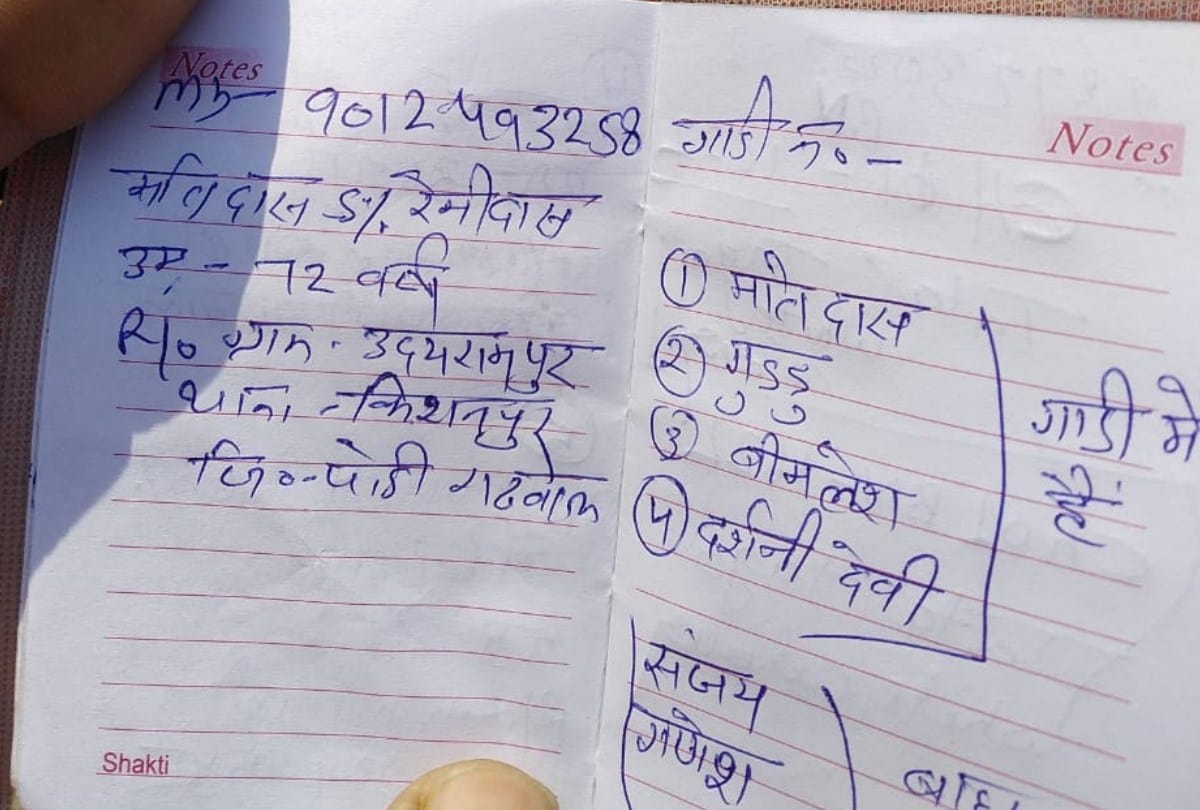 Notes
mb- 9012493258
मति दास S/o रेमीदास
उम्र - 72 वर्ष
R/o ग्राम - उदयरामपुर
थाना - किशनपुर
जि०-पोडी गढवाल
Shakti
Notes
गाडी न० -
① मति दास
② गुडडु
③ बीमलेश
④ दर्शनी देवी
गाडी मे
हैं
संजय
गणेश